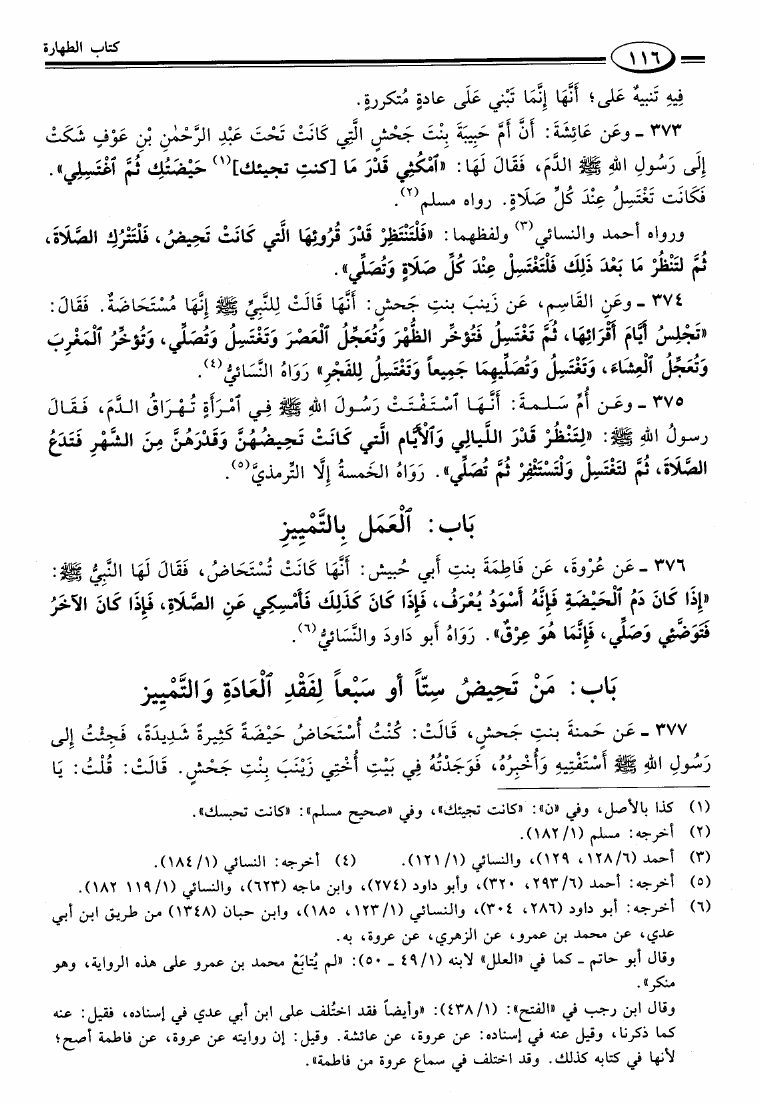 كتاب الطهارة
١١٦
فِيهِ تَنبيهٌ عَلى؛ أَنَّهَا إِنَّمَا تَبْني عَلَى عادةٍ مُتكررةٍ.
٣٧٣ ـ وعَن عَائِشَةَ: أَنَّ أُمَّ حَبِيبَةَ بِنْتَ جَحْشٍ الَّتِي كَانَتْ تَحْتَ عَبْدِ الرَّحْمٰنِ بْنِ عَوْفٍ شَكَتْ
إِلَى رَسُولِ اللهِ ﷺ الدَّمَ، فَقَالَ لَهَا: «ٱمْكُثِي قَدْرَ مَا [كنتِ تجيئك](١) حَيْضَتُكِ ثُمَّ ٱغْتَسِلِي».
فَكَانَت تَغْتَسِلُ عِنْدَ كُلِّ صَلَاةٍ. رواه مسلم(٢).
ورواه أحمد والنسائي(٣) ولفظهما: «فَلْتَنْتَظِرْ قَدْرَ قُرُوئِهَا الَّتي كَانَتْ تَحِيضُ، فَلْتَتْرُكِ الصَّلَاةَ،
ثُمَّ لتَنْظُرْ مَا بَعْدَ ذَلِكَ فَلْتَغْتَسِلْ عِنْدَ كُلِّ صَلَاةٍ وَتُصَلِّي».
٣٧٤ ـ وعَنِ القَاسِمِ، عَن زَينَبَ بنتِ جَحشٍ: أَنَّهَا قَالَتْ لِلنَّبِيِّ ﷺ إِنَّهَا مُسْتَحَاضَةٌ. فَقَالَ:
«تَجْلِسُ أَيَّامَ أَقْرَائِهَا، ثُمَّ تَغْتَسِلُ فَتُؤخِّر الظُّهْرَ وَتُعَجِّلُ ٱلْعَصْرَ وَتَغْتَسِلُ وَتُصَلِّي، وَتُؤخِّرُ ٱلْمَغْرِبَ
وَتُعَجِّلُ ٱلْعِشَاءَ، وَتَغْتَسِلُ وَتُصَلِّيهِمَا جَمِيعاً وَتَغْتَسِلُ لِلفَجْرِ» رَوَاهُ النَّسَائيُّ(٤).
٣٧٥ ـ وعَن أُمِّ سَلمةَ: أَنَّهَا ٱسْتَفْتَتْ رَسُولَ اللهِ ﷺ فِي ٱمْرَأَةٍ تُهْرَاقُ الدَّمَ، فَقَالَ
رسولُ اللهِ ﷺ: «لِتَنْظُر قَدْرَ اللَّيالِي وَٱلْأَيَّام الَّتي كَانَتْ تَحِيضُهُنَّ وَقَدْرَهُنَّ مِنَ الشَّهْرِ فَتَدَعُ
الصَّلَاةَ، ثُمَّ لتَغْتَسِلْ وَلْتَسْتَثْفِرْ ثُمَّ تُصَلِّي». رَوَاهُ الخَمسةُ إلَّا التِّرمذيَّ(٥).
بَاب: ٱلْعَمَل بِالتَّمْيِيزِ
٣٧٦ ـ عَن عُرْوةَ، عَن فَاطِمَةَ بنتِ أَبي حُبيش: أَنَّهَا كَانَتْ تُسْتَحَاضُ، فَقَالَ لَهَا النَّبِيُّ ﷺ:
«إِذَا كَانَ دَمُ ٱلْحَيْضَةِ فَإِنَّه أَسْوَدُ يُعْرَفُ، فَإِذَا كَانَ كَذَلِكَ فَأَمْسِكِي عَنِ الصَّلَاةِ، فَإِذَا كَانَ الآخَرُ
فَتَوَضَّئِي وَصَلِّي، فَإِنَّمَا هُوَ عِرْقٌ». رَوَاهُ أبو دَاودَ والنَّسَائيُّ(٦).
بَاب: مَنْ تَحِيضُ سِتّاً أو سَبْعاً لِفَقْدِ ٱلْعَادَةِ وَالتَّمْيِيز
٣٧٧ ـ عَن حَمنةَ بنتِ جَحشٍ، قَالَتْ: كُنْتُ أُسْتَحَاضُ حَيْضَةً كَثِيرةً شَدِيدَةً، فَجِئْتُ إلى
رَسُولِ اللهِ ﷺ أَسْتَفْتِيهِ وَأُخْبِرُهُ، فَوَجَدْتُهُ فِي بَيْتِ أُخْتِي زَيْنَبَ بِنْتِ جَحْشٍ. قَالَتْ: قُلْتُ: يَا
(١) كذا بالأصل، وفي «ن»: «كانت تجيئك»، وفي «صحيح مسلم»: «كانت تحبسك».
(٢) أخرجه: مسلم (١/ ١٨٢).
(٣) أحمد (٦/ ١٢٨، ١٢٩)، والنسائي (١/ ١٢١). (٤) أخرجه: النسائي (١/ ١٨٤).
(٥) أخرجه: أحمد (٦/ ٢٩٣، ٣٢٠)، وأبو داود (٢٧٤)، وابن ماجه (٦٢٣)، والنسائي (١/ ١١٩ ١٨٢).
(٦) أخرجه: أبو داود (٢٨٦، ٣٠٤)، والنسائي (١/ ١٢٣، ١٨٥)، وابن حبان (١٣٤٨) من طريق ابن أبي
عدي، عن محمد بن عمرو، عن الزهري، عن عروة، به.
وقال أبو حاتم ـ كما في «العلل» لابنه (١/ ٤٩ ـ ٥٠): «لم يُتابَعْ محمد بن عمرو على هذه الرواية، وهو
منكر».
وقال ابن رجب في «الفتح»: (١/ ٤٣٨): «وأيضاً فقد اختُلف على ابن أبي عدي في إسناده، فقيل: عنه
كما ذكرنا، وقيل عنه في إسناده: عن عروة، عن عائشة. وقيل: إن روايته عن عروة، عن فاطمة أصح؛
لأنها في كتابه كذلك. وقد اختلف في سماع عروة من فاطمة».